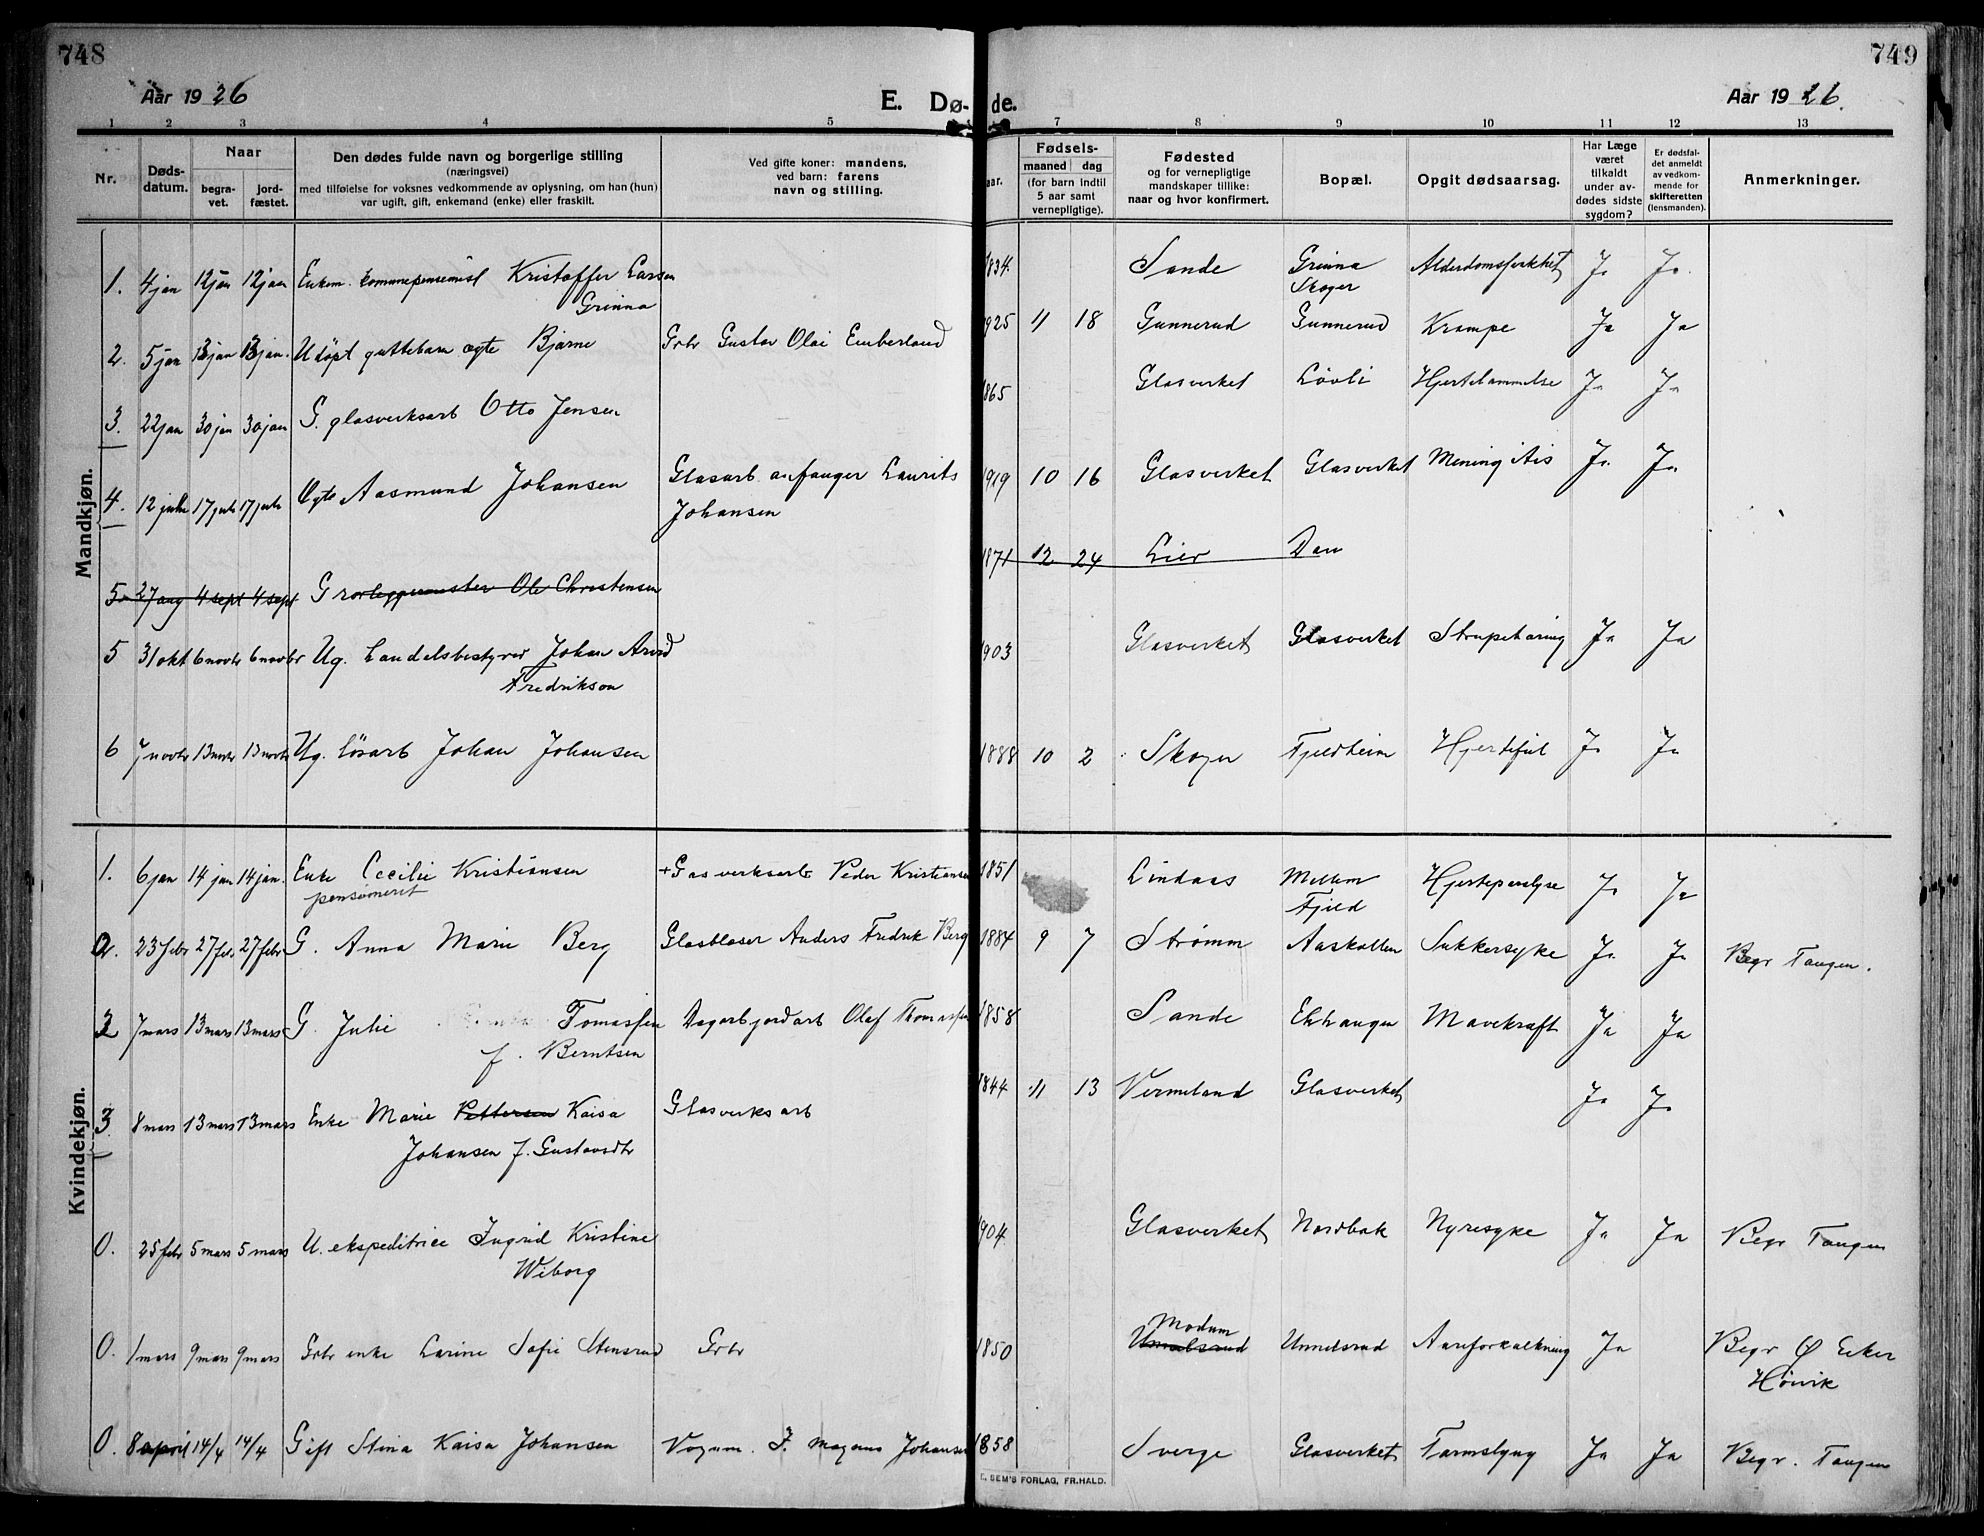 748
749
Aar 1926
E. Dø-
de.
Aar 1926.
1 2 3 4 5 7 8 9 10 11 12 13
Nr.
Døds-
datum.
Naar
begra-
vet.
jord-
fæstet.
Den dødes fulde navn og borgerlige stilling
(næringsvei)
med tilføielse for voksnes vedkommende av oplysning, om han (hun)
var ugift, gift, enkemand (enke) eller fraskilt.
Ved gifte koner: mandens,
ved barn: farens
navn og stilling.
aar.
Fødsels-
maaned dag
(for barn indtil
5 aar samt
vernepligtige).
Fødested
og for vernepligtige
mandskaper tillike:
naar og hvor konfirmert.
Bopæl.
Opgit dødsaarsag.
Har Læge
været
tilkaldt
under av-
dødes sidste
sygdom?
Er dødsfal-
det anmeldt
av vedkom-
mende for
skifteretten
(lensmanden).
Anmerkninger.
Mandkjøn.
1. 4 jan 12 jan 12 jan Enkem. kommunepensionist Kristoffer Larsen 1834 Sande Grinna Alderdomssvakhet Ja Ja.
Grinna Skoger
2. 5 jan 13 jan 13 jan. Udøpt guttebarn ægte Bjarne Grbr Gustav Olai Emberland 1925 11 18 Gunnerud Gunnerud Krampe Ja Ja
3. 22 jan 30 jan 30 jan G. glasverksarb Otto Jensen 1865 Glasverket Løvli Hjertelammelse Ja Ja
4. 12 juli 17 juli 17 juli Ægte Aasmund Johansen Glasarb anfanger Laurits 1919 10 16 Glasverket Glasverket Meningitis Ja Ja
Johansen
5 27 aug 4 sept 4 sept G rørleggermester Ole Christensen 1871 12 24 Lier Dan
5 31 okt 6 novbr 6 novbr Ug. handelsbestyrer Johan Arvid 1903 Glasverket Glasverket Strupetæring Ja Ja
Fredrikson
6 7 novbr 13 novbr 13 novbr Ug. løsarb Johan Johansen 1888 10 2 Skoger Fjeldheim Hjertefeil Ja Ja
Kvindekjøn.
1. 6 jan 14 jan 14 jan. Enke Cecilie Kristiansen + Gasverksarb Peder Kristiansen 1851 Lindaas Mellem Hjerteparalyse Ja Ja
pensioneret Fjeld
2. 23 febr 27 feb. 27 febr G. Anna Marie Berg Glasblaser Anders Fredrik Berg 1884 9 7 Strømm Aaskollen Sukkersyke Ja Ja Begr Tangen.
2 7 mars 13 mars 13 mars G. Julie Tomassen Dagarb jordarb Olaf Thomassen 1858 Sande Ekhaugen Mavekræft Ja Ja
f. Berntsen
3 8 mars 13 mars 13 mars Enke Marie Pettersen Kaisa Glasverksarb 1844 11 13 Vermeland Glasverket Ja Ja
Johansen f. Gustavsdtr
0. 25 febr 5 mars 5 mars U. ekspeditrice Ingrid Kristine 1904 Glasverket Nordbak Nyresyke Ja Ja Begr Tangen
Wiborg
Modum
0. 1 mars 9 mars 9 mars Grbr enke Larine Sofie Stensrud Grbr 1850 Unnelsrud Unnelsrud Aareforkalkning Ja Begr Ø Eker
Høivik
0. 8 april 14/4 14/4 Gift Stina Kaisa Johansen Vognm. J. Magnus Johansen 1858 Sverge Glasverket Tarmslyng Ja Ja Begr. Tangen
E. SEM'S FORLAG, FR.HALD.